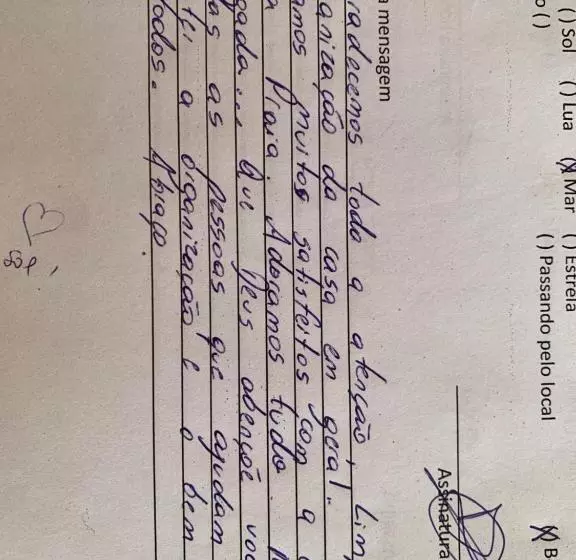 ( ) Sol ( ) Lua (X) Mar ( ) Estrela
o ( ) ( ) Passando pelo local (X) B
a mensagem
radecemos todo a atenção, Lim
anização da casa em geral..
amos muitos satisfeitos com a
a Praia. Adoramos tudo.
gada... Que Deus abençoe voc
as as pessoas que ajudam
a organização e o bem
todos. Abraço.
Assinatura